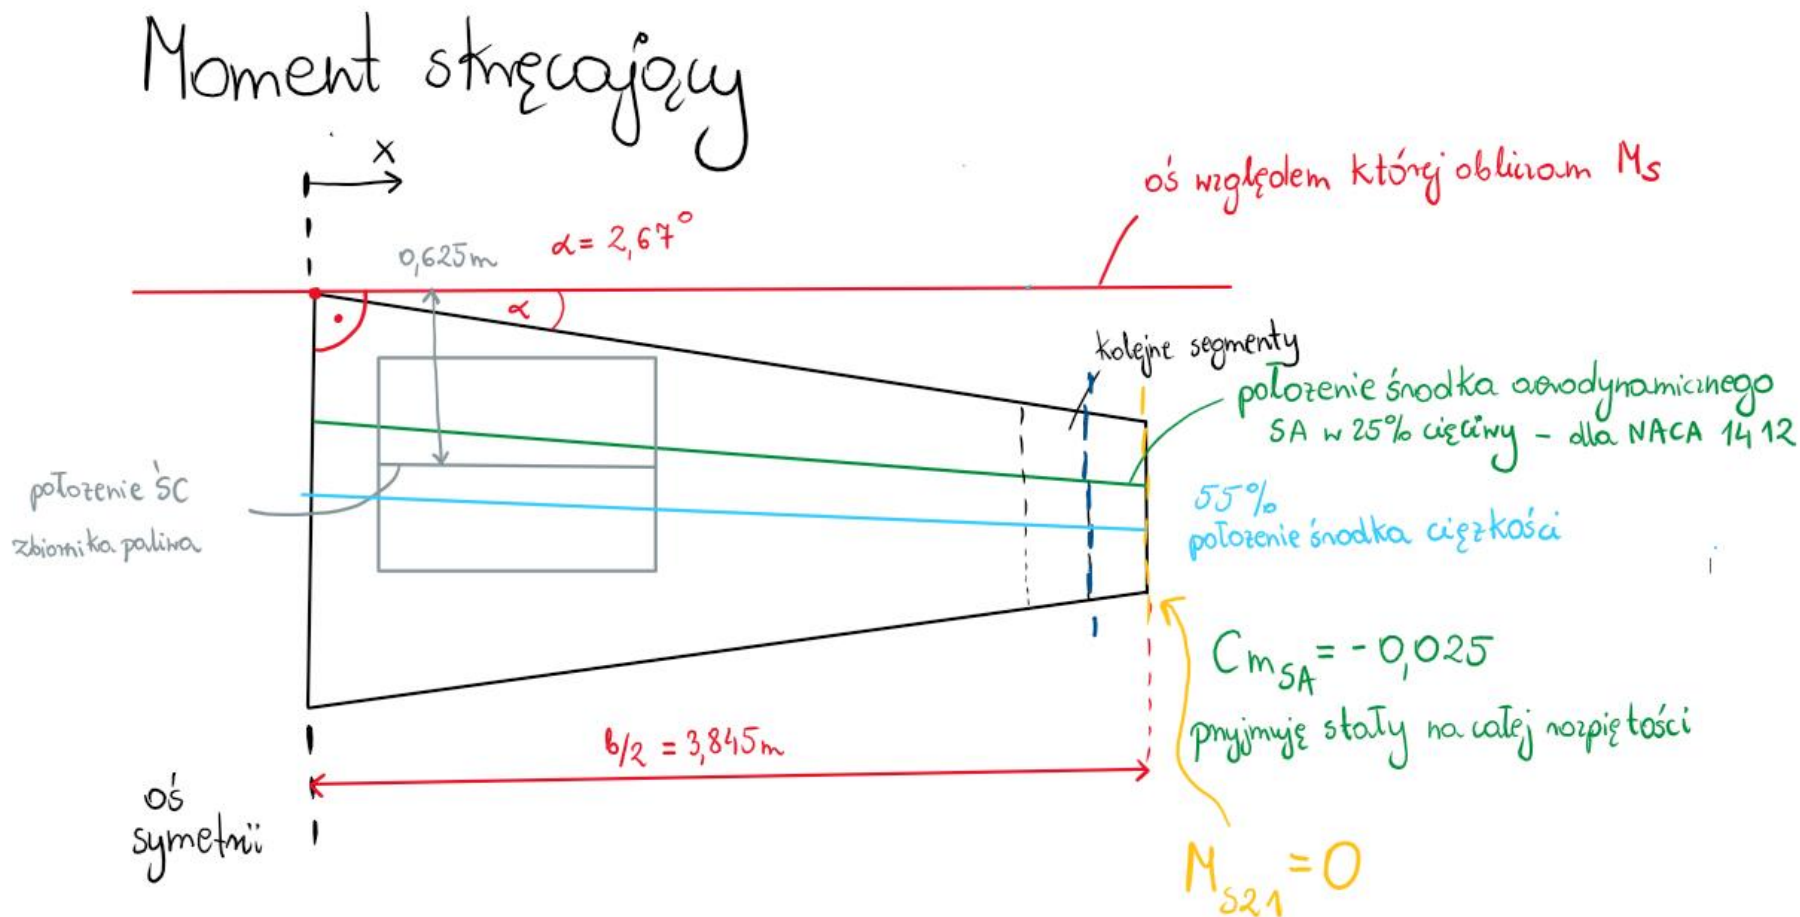 Moment skręcający
x
oś względem której obliczam Ms
0,625m
α = 2,67°
α
kolejne segmenty
położenie środka aerodynamicznego
SA w 25% cięciwy – dla NACA 1412
położenie ŚC
zbiornika paliwa
55%
położenie środka ciężkości
CmSA = - 0,025
przyjmuję stały na całej rozpiętości
b/2 = 3,845m
oś
symetrii
Ms21 = 0